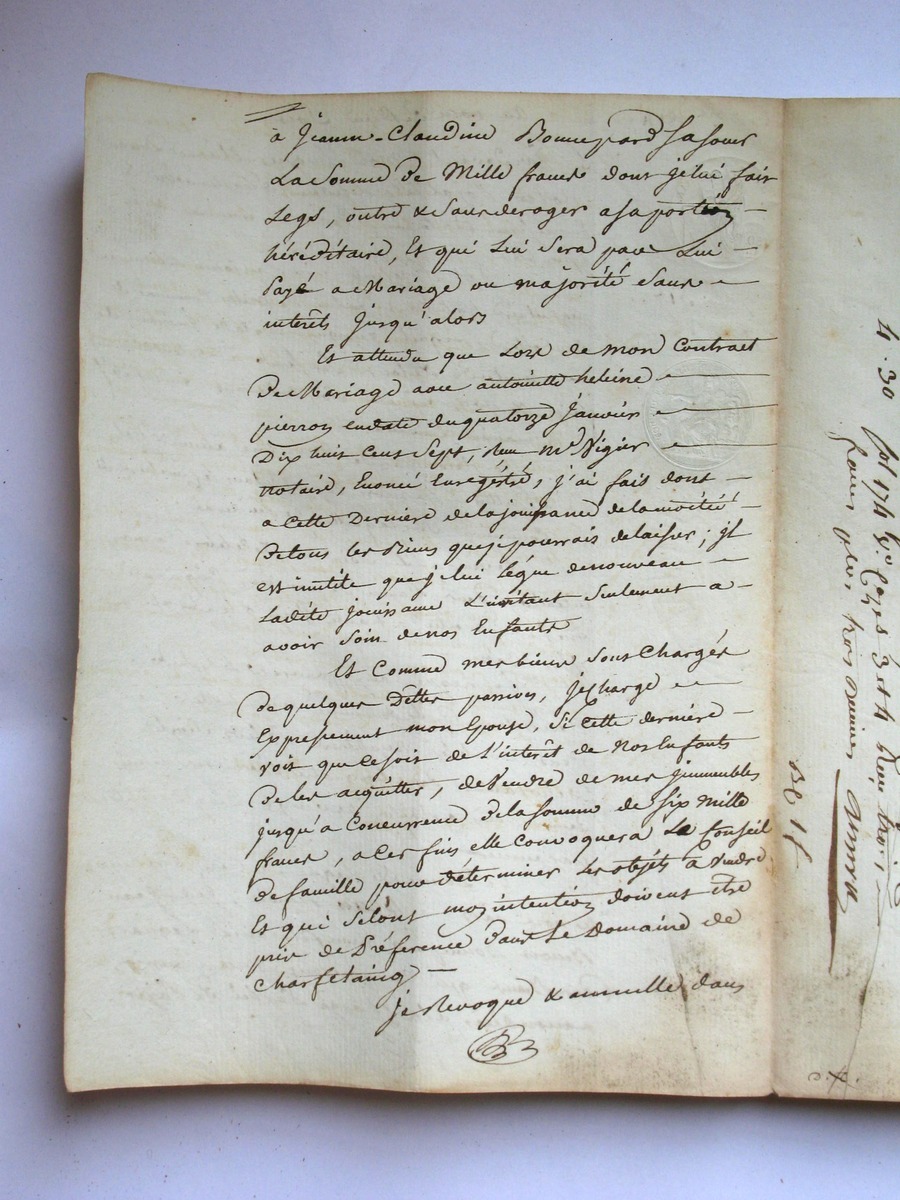 à Jeanne-Claudine Bonnepard sa soeur
La Somme De Mille francs dont je lui fais
Legs, outre & sans deroger a sa portion
héréditaire, Et qui Lui Sera payé Lui
payé a Mariage ou majorité Sans
interêts jusqu'alors
Et attendu que Lors de mon Contract
De Mariage avec antoinette heleine
pierron en date du quatorze Janvier
Dix huit Cent Sept, Me Vigier
notaire, Enregéstré, j'ai fais dont
a Cette Derniere de la jouissance de la moitié
de tous les biens que je pourrais delaisser; jl
est inutile que je lui légue de nouveau
Ladite jouissance L'invitant Seulement a
avoir Soin de nos Enfants
Et Comme mes biens Sont Chargés
De quelques Dettes passives, je charge
Expressement mon Epouse, Si Cette derniere
voit que ce soit de L'interêt de Nos Enfants
De les acquitter, de Vendre de mes jmmeubles
jusqu'a Concurrence de la somme de Six Mille
francs, a Ces fins elle Convoquera Le Conseil
De famille pour déterminer Les objéts a vendre
Et qui Selont mes intention doivent être
pris de Préference Dans Le Domaine de
Je Revoque & annulle dans
4. 30 fol 174 Vo
trois